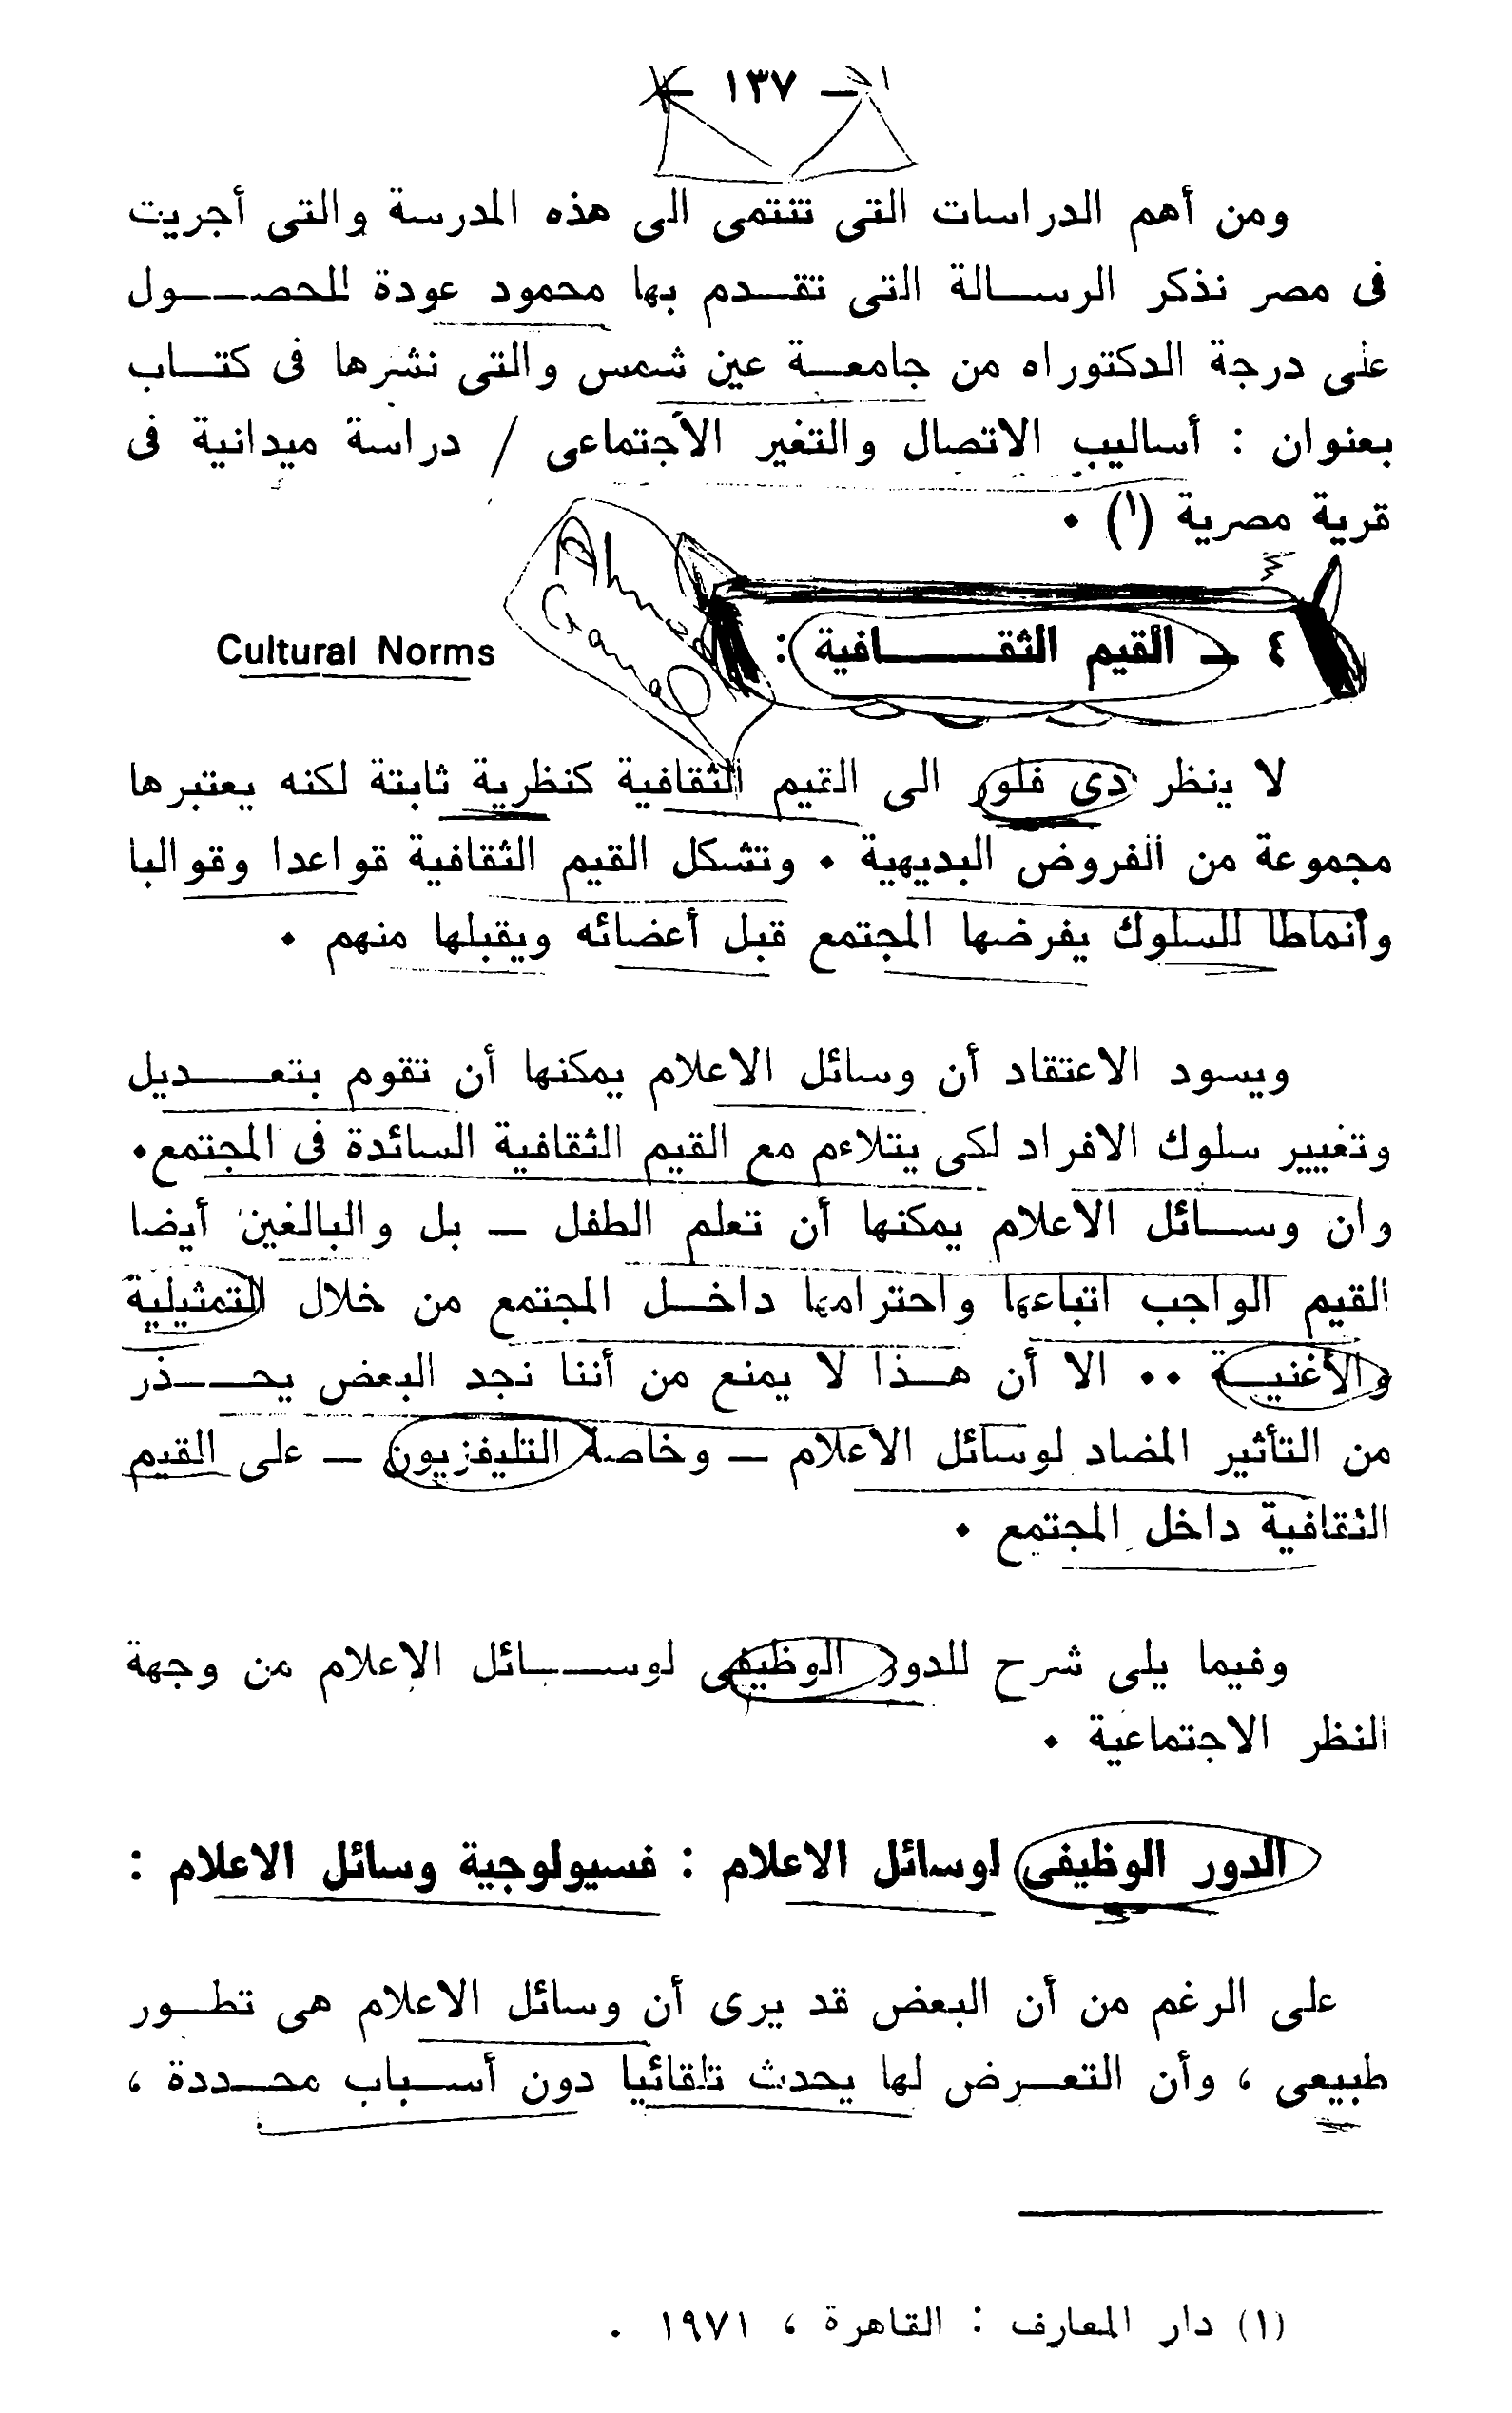 — ١٣٧ —
ومن أهم الدراسات التى تنتمى الى هذه المدرسة والتى أجريت
فى مصر نذكر الرسالة التى تقدم بها محمود عودة للحصول
على درجة الدكتوراه من جامعة عين شمس والتى نشرها فى كتاب
بعنوان : أساليب الاتصال والتغير الاجتماعى / دراسة ميدانية فى
قرية مصرية (١) •
٤ — القيم الثقافية : Cultural Norms
لا ينظر دى فلور الى القيم الثقافية كنظرية ثابتة لكنه يعتبرها
مجموعة من الفروض البديهية • وتشكل القيم الثقافية قواعدا وقوالبا
وأنماطا للسلوك يفرضها المجتمع قبل أعضائه ويقبلها منهم •
ويسود الاعتقاد أن وسائل الاعلام يمكنها أن تقوم بتعديل
وتغيير سلوك الافراد لكى يتلاءم مع القيم الثقافية السائدة فى المجتمع•
وان وسائل الاعلام يمكنها أن تعلم الطفل — بل والبالغين أيضا
القيم الواجب اتباعها واحترامها داخل المجتمع من خلال التمثيلية
والأغنية •• الا أن هذا لا يمنع من أننا نجد البعض يحذر
من التأثير المضاد لوسائل الاعلام — وخاصة التليفزيون — على القيم
الثقافية داخل المجتمع •
وفيما يلى شرح للدور الوظيفى لوسائل الإعلام من وجهة
النظر الاجتماعية •
الدور الوظيفى لوسائل الاعلام : فسيولوجية وسائل الاعلام :
على الرغم من أن البعض قد يرى أن وسائل الاعلام هى تطور
طبيعى ، وأن التعرض لها يحدث تلقائيا دون أسباب محددة ،
(١) دار المعارف : القاهرة ، ١٩٧١ .